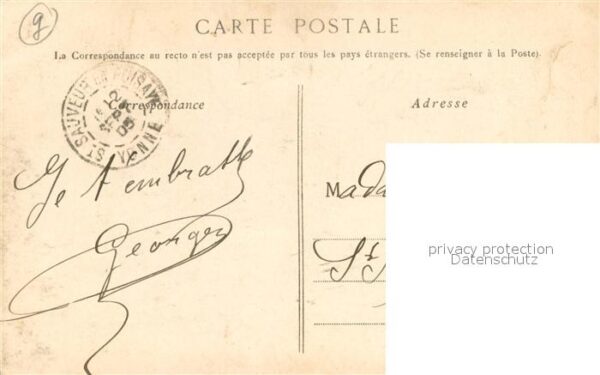 9
CARTE POSTALE
La Correspondance au recto n'est pas acceptée par tous les pays étrangers. (Se renseigner à la Poste).
Correspondance
Adresse
ST SAUVEUR EN PUISAYE
12
05
YONNE
Je t'embrasse
Georges
Mada
St
privacy protection
Datenschutz